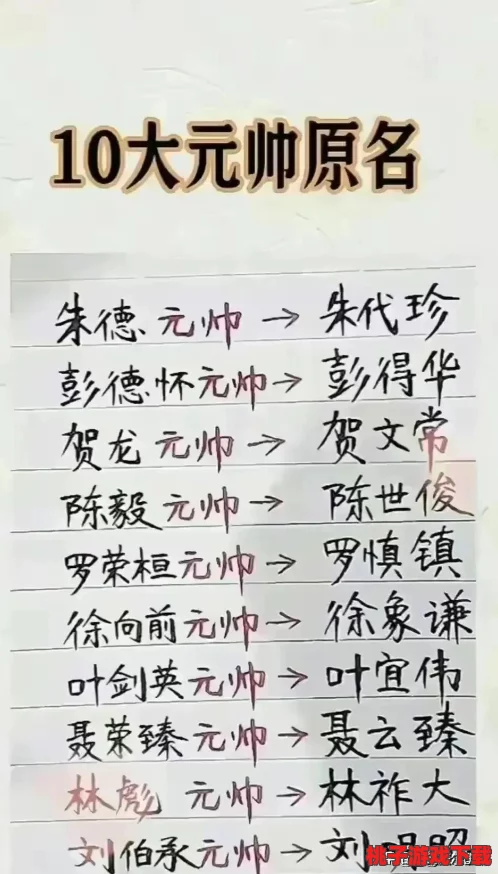 10大元帅原名
朱德 元帅 → 朱代珍
彭德怀元帅 → 彭得华
贺龙 元帅 → 贺文常
陈毅 元帅 → 陈世俊
罗荣桓元帅 → 罗慎镇
徐向前元帅 → 徐象谦
叶剑英元帅 → 叶宜伟
聂荣臻 元帅 → 聂云臻
林彪 元帅 → 林祚大
刘伯承元帅 → 刘明昭
桃子游戏下载